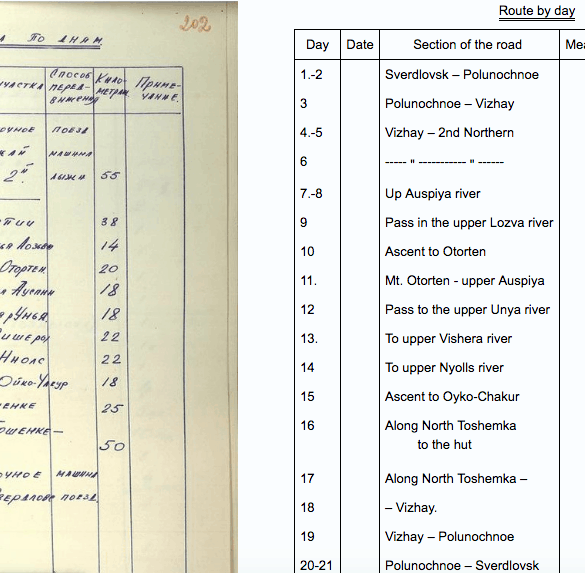 202
ПО ДНЯМ.
УЧАСТКА СПОСОБ ПЕРЕД- ВИЖЕНИЯ КИЛО- МЕТРАЖ. ПРИМЕ- ЧАНИЕ.
ОЧНОЕ ПОЕЗД
ЖАЙ МАШИНА
2й ЛЫЖИ 55
ПИИ 38
ЬЯ ЛОЗЬВЫ 14
ОТОРТЕН 20
АУСПИИ 18
УНЬЯ. 18
ВИШЕРЫ 22
НИОЛС 22
ОЙКО-ЧАКУР 18
ЕНКЕ 25
ОШЕНКЕ –
50
ОЧНОЕ МАШИНА
ВЕРДЛОВС ПОЕЗД.
Route by day
Day Date Section of the road Mea
1.-2 Sverdlovsk – Polunochnoe
3 Polunochnoe – Vizhay
4.-5 Vizhay – 2nd Northern
6 ----- " ----------- " ------
7.-8 Up Auspiya river
9 Pass in the upper Lozva river
10 Ascent to Otorten
11. Mt. Otorten - upper Auspiya
12 Pass to the upper Unya river
13. To upper Vishera river
14 To upper Nyolls river
15 Ascent to Oyko-Chakur
16 Along North Toshemka
to the hut
17 Along North Toshemka –
18 – Vizhay.
19 Vizhay – Polunochnoe
20-21 Polunochnoe – Sverdlovsk